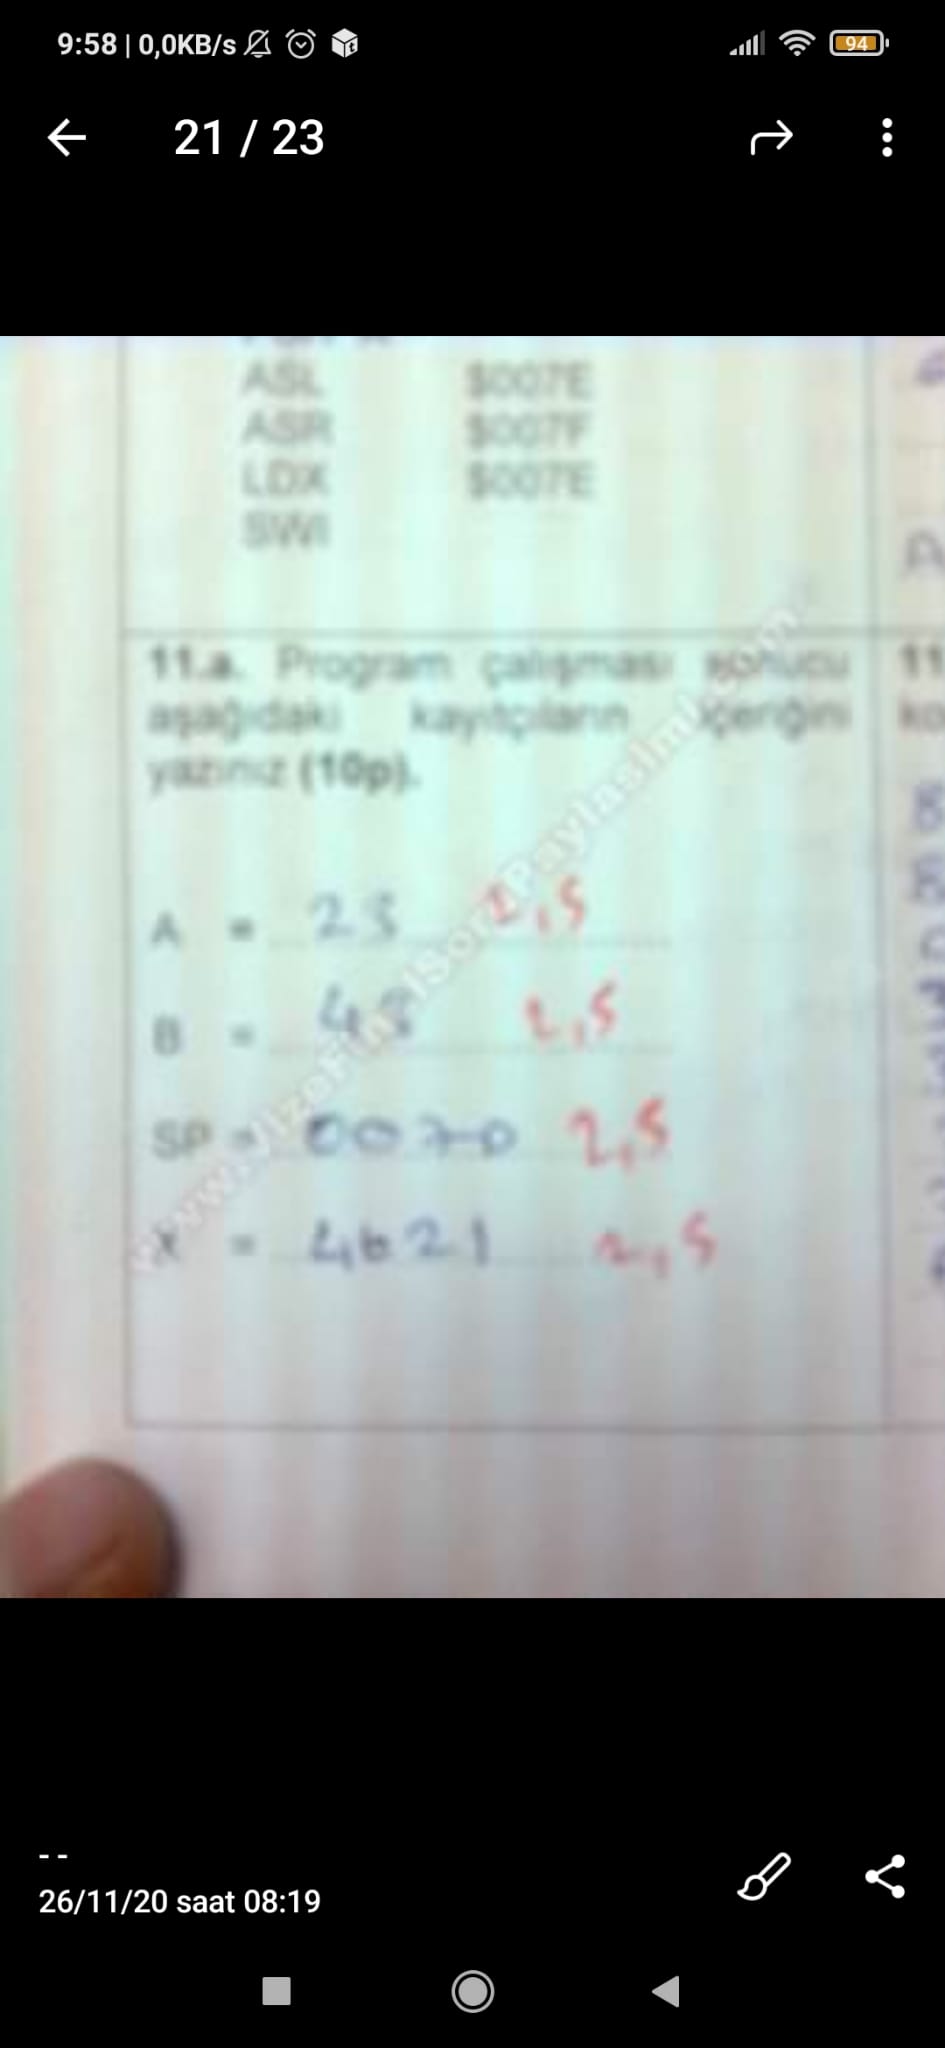 9:58 | 0,0KB/s
94
21 / 23
ASL $007E
ASR $007F
LDX $007E
SWI
11.a. Program çalışması sonucu 11
aşağıdaki kayıtçıların içeriğini ko
yazınız (10p).
A = 23 2,5
B = 48 2,5
SP = 0070 2,5
X = 4621 2,5
www.VizeFinalSoruPaylasimi.com
--
26/11/20 saat 08:19